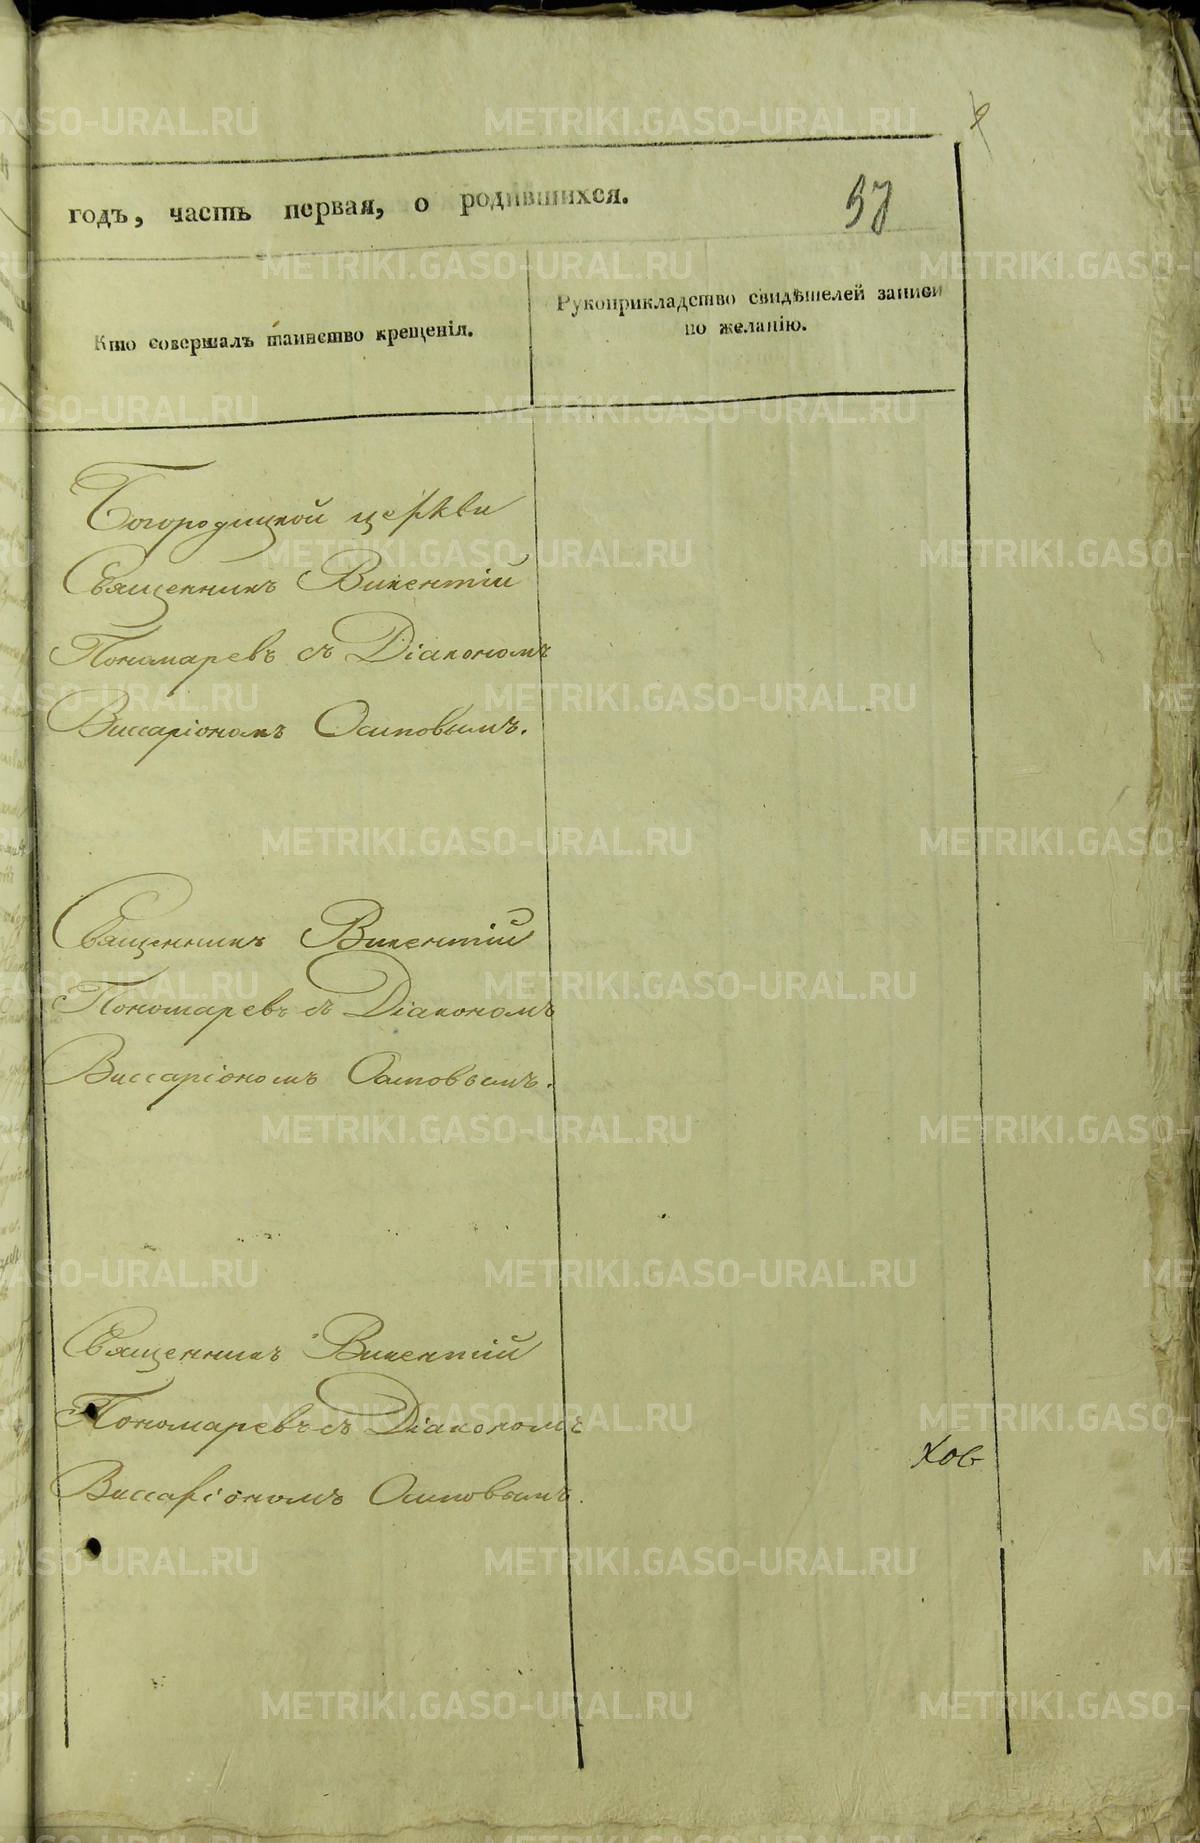 годъ, часть первая, о родившихся.
57
Кто совершалъ таинство крещенія.
Рукоприкладство свидѣтелей записи
по желанію.
Богородицкой церкви
Священникъ Викентій
Пономаревъ съ Діакономъ
Виссаріономъ Осиповымъ.
Священникъ Викентій
Пономаревъ съ Діакономъ
Виссаріономъ Осиповымъ.
Священникъ Викентій
Пономаревъ съ Діакономъ
Виссаріономъ Осиповымъ.
хов
METRIKI.GASO-URAL.RU